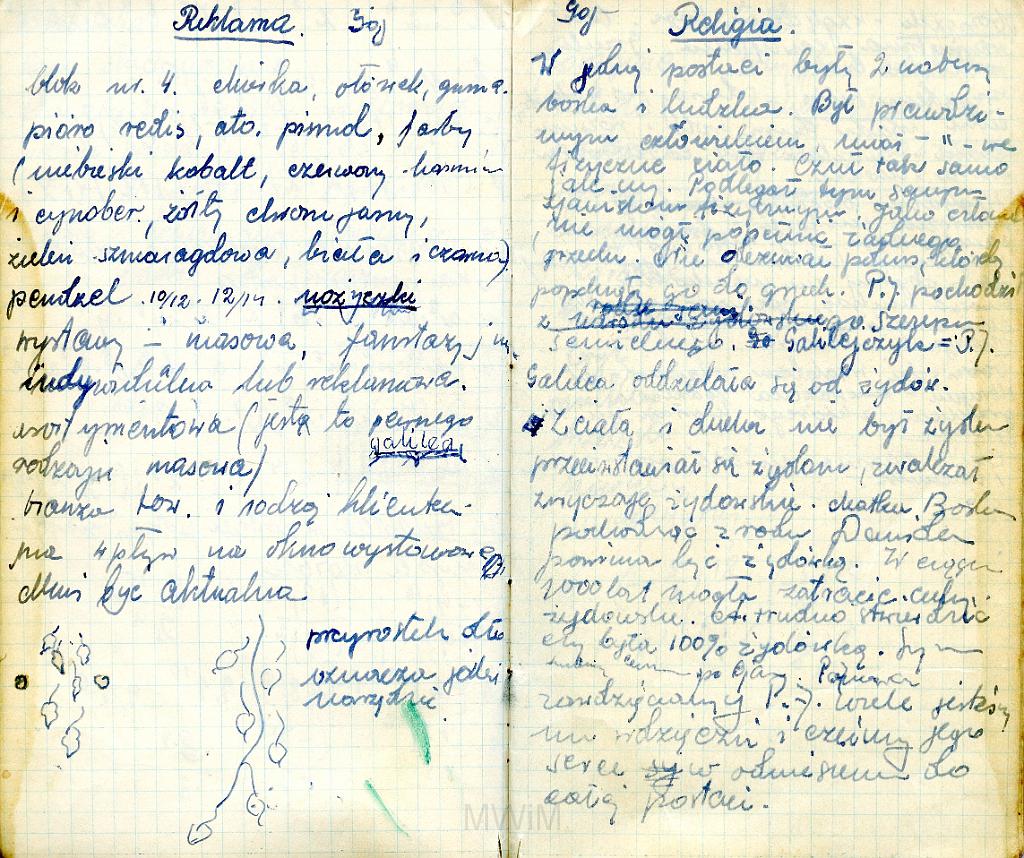 Reklama. Goj
blok nr. 4. ekierka, ołówek, guma.
pióro redis, ato. pinnol, farby
(niebieski kobalt, czerwony karmin
i cynober, żółty chrom jasny,
zieleń szmaragdowa, biała i czarna)
pendzel 10/12. 12/14. nożyczki
wystawy – masowa, fantazyjna,
indywidualna lub reklamowa.
asortymentowa (jest to pewnego
galilea
rodzaju masowa)
branża tow. i rodzaj klienta
ma wpływ na okno wystawowe
Musi być aktualna
przyrostek dło
oznacza jakieś
narzędzie
Goj Religia.
W jednej postaci były 2 natury
boska i ludzka. Był prawdzi-
wym człowiekiem, miał – " – we
fizyczne ciało. Czuł tak samo
jak my. Podlegał tym samym
zjawiskom fizycznym. Jako człowiek
nie mógł popełnić żadnego
grzechu. Nie odczuwał pokus, któreby
popchnęły go do grzech. P.J. pochodzi
z szczepu
semickiego. Galilejczyk = P.J.
Galilea oddzielała się od żydów.
Z ciała i ducha nie był żydem
przeciwstawiał się żydom, zwalczał
zwyczaje żydowskie. Matka Boska
pochodząc z rodu Dawida
powinna być żydówką. W ciągu
1000 lat mogła zatracić cechy
żydowskie. trudno stwierdzić
czy była 100% żydówką.
po Ojcu.
zawdzięczamy P.J. wiele jesteśmy
mu wdzięczni i czcimy jego
serce w odniesieniu do
całej postaci.
MWiM